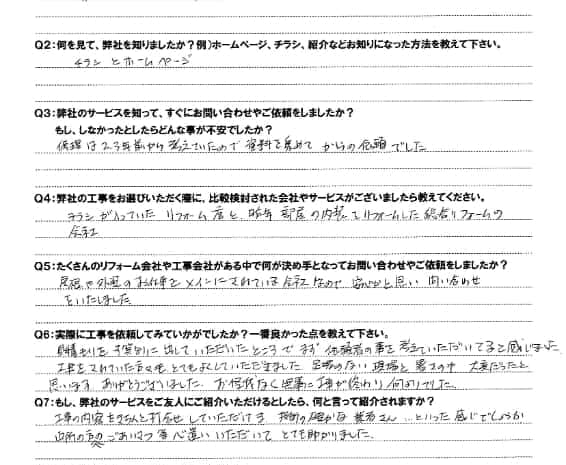 Q2:何を見て、弊社を知りましたか？例)ホームページ、チラシ、紹介などお知りになった方法を教えて下さい。
チラシ と ホームページ
Q3:弊社のサービスを知って、すぐにお問い合わせやご依頼をしましたか？
もし、しなかったとしたらどんな事が不安でしたか？
依頼は2,3年前から考えていたので 資料を集めて からの依頼 でした
Q4:弊社の工事をお選びいただく際に、比較検討された会社やサービスがございましたら教えてください。
チラシ が入っていた リフォーム店と、昨年 部屋の内装 リフォームした 総合リフォームの
会社
Q5:たくさんのリフォーム会社や工事会社がある中で何が決め手となってお問い合わせやご依頼をしましたか？
屋根や外壁のお仕事を メインにされている会社なので 安心かと思い 問い合わせ
をいたしました
Q6:実際に工事を依頼してみていかがでしたか？一番良かった点を教えて下さい。
見積もりを 出していただいたところで まず 依頼者の事を考えていただいてると感じました
工事をされていた方々も とてもよくしていただきました 足場のない 現場と 暑さの中 大変だったと
思います ありがとうございました。 無事に工事が終わり 何よりでした。
Q7:もし、弊社のサービスをご友人にご紹介いただけるとしたら、何と言って紹介されますか？
工事の内容をきちんと打合せ していただける 技術の確かな 業者さん…といった 感じでしょうか
近所の方の ごあいさつ等 心遣い いただいて とても助かりました。